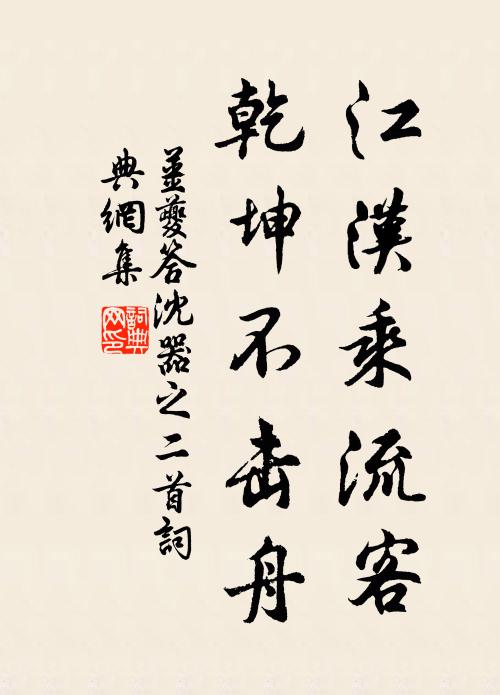 江漢乘流客
乾坤不击舟
姜夔答沈器之二首詞
典網集
詞典
网印